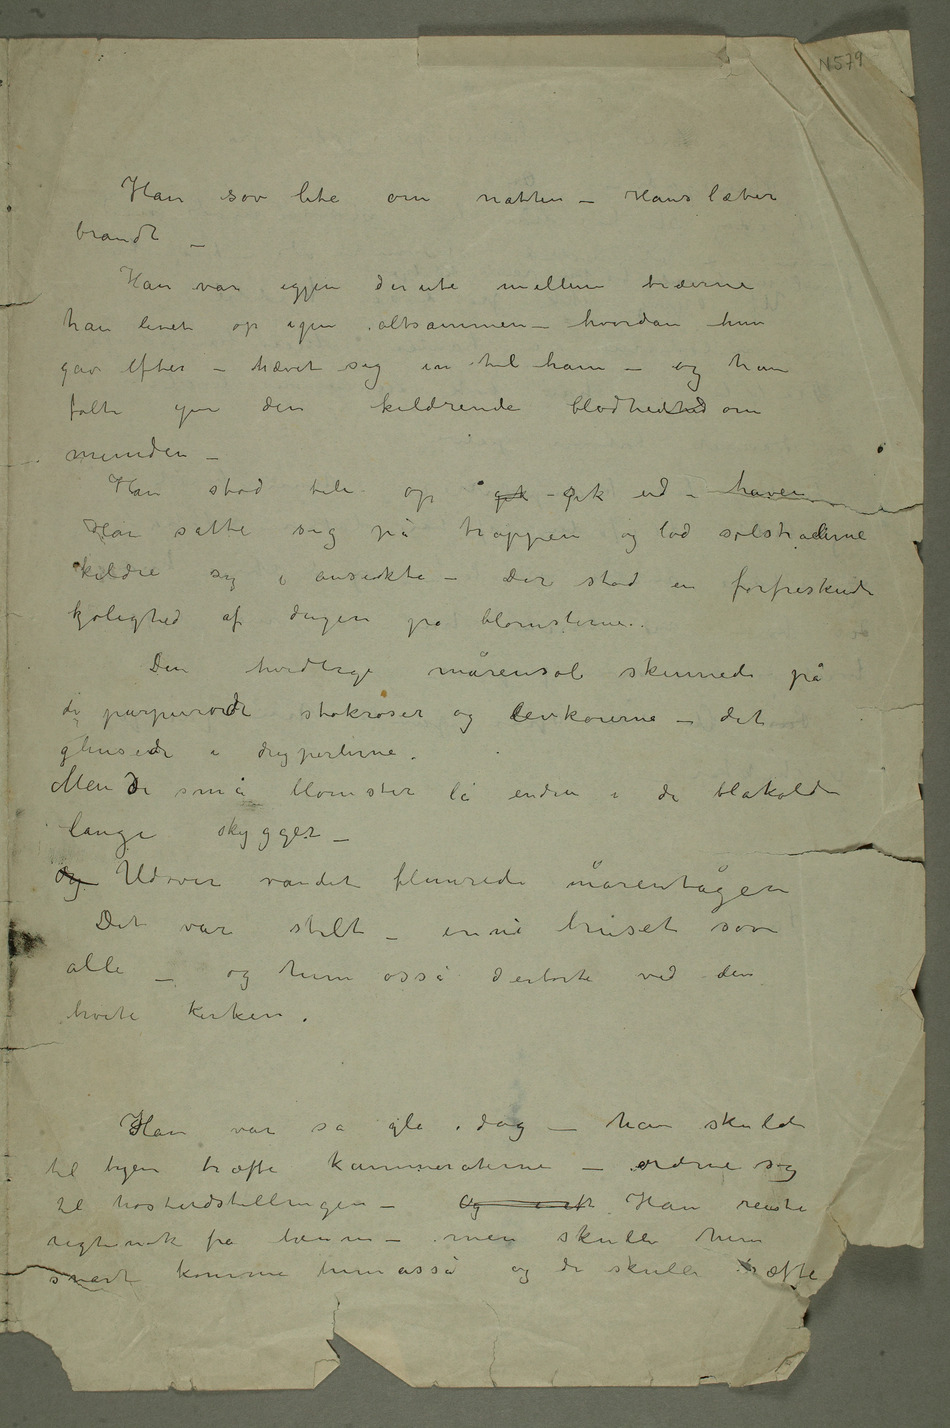 N579
Han sov lite om natten – Hans læber
brandt –
Han var igjen derute mellem træerne
han levet op igen altsammen – hvordan hun
gav efter – hævet sig in til ham – og han
følte  den kildrende blødhedhed om
munden –
Han stod tile op gik – gik ud – haven
Han satte sig på trappen og lod solstralerne
kildre sig i ansiktet – Der stod en forfriskende
kjølighed af dugen på blomsterne.
Den hvidlige mårensol skinnede på
de purpurøde stokroser og levkoierne – det
glinsede i dugperlerne.
Men de små blomster lå endnu i de blåkolde
lange skygger –
og Udover vandet flimrede mårentågen
Det var stilt – i huset sov
alle – og hun osså derborte ved den
hvite kirken.
Han var så gla idag – han skulde
til byen træffe kammeraterne – ordne sig
til høstudstillingen – Og Han reiste
rigtinok fra henne – men skulle hun
snart komme hun osså og de skulle træffe